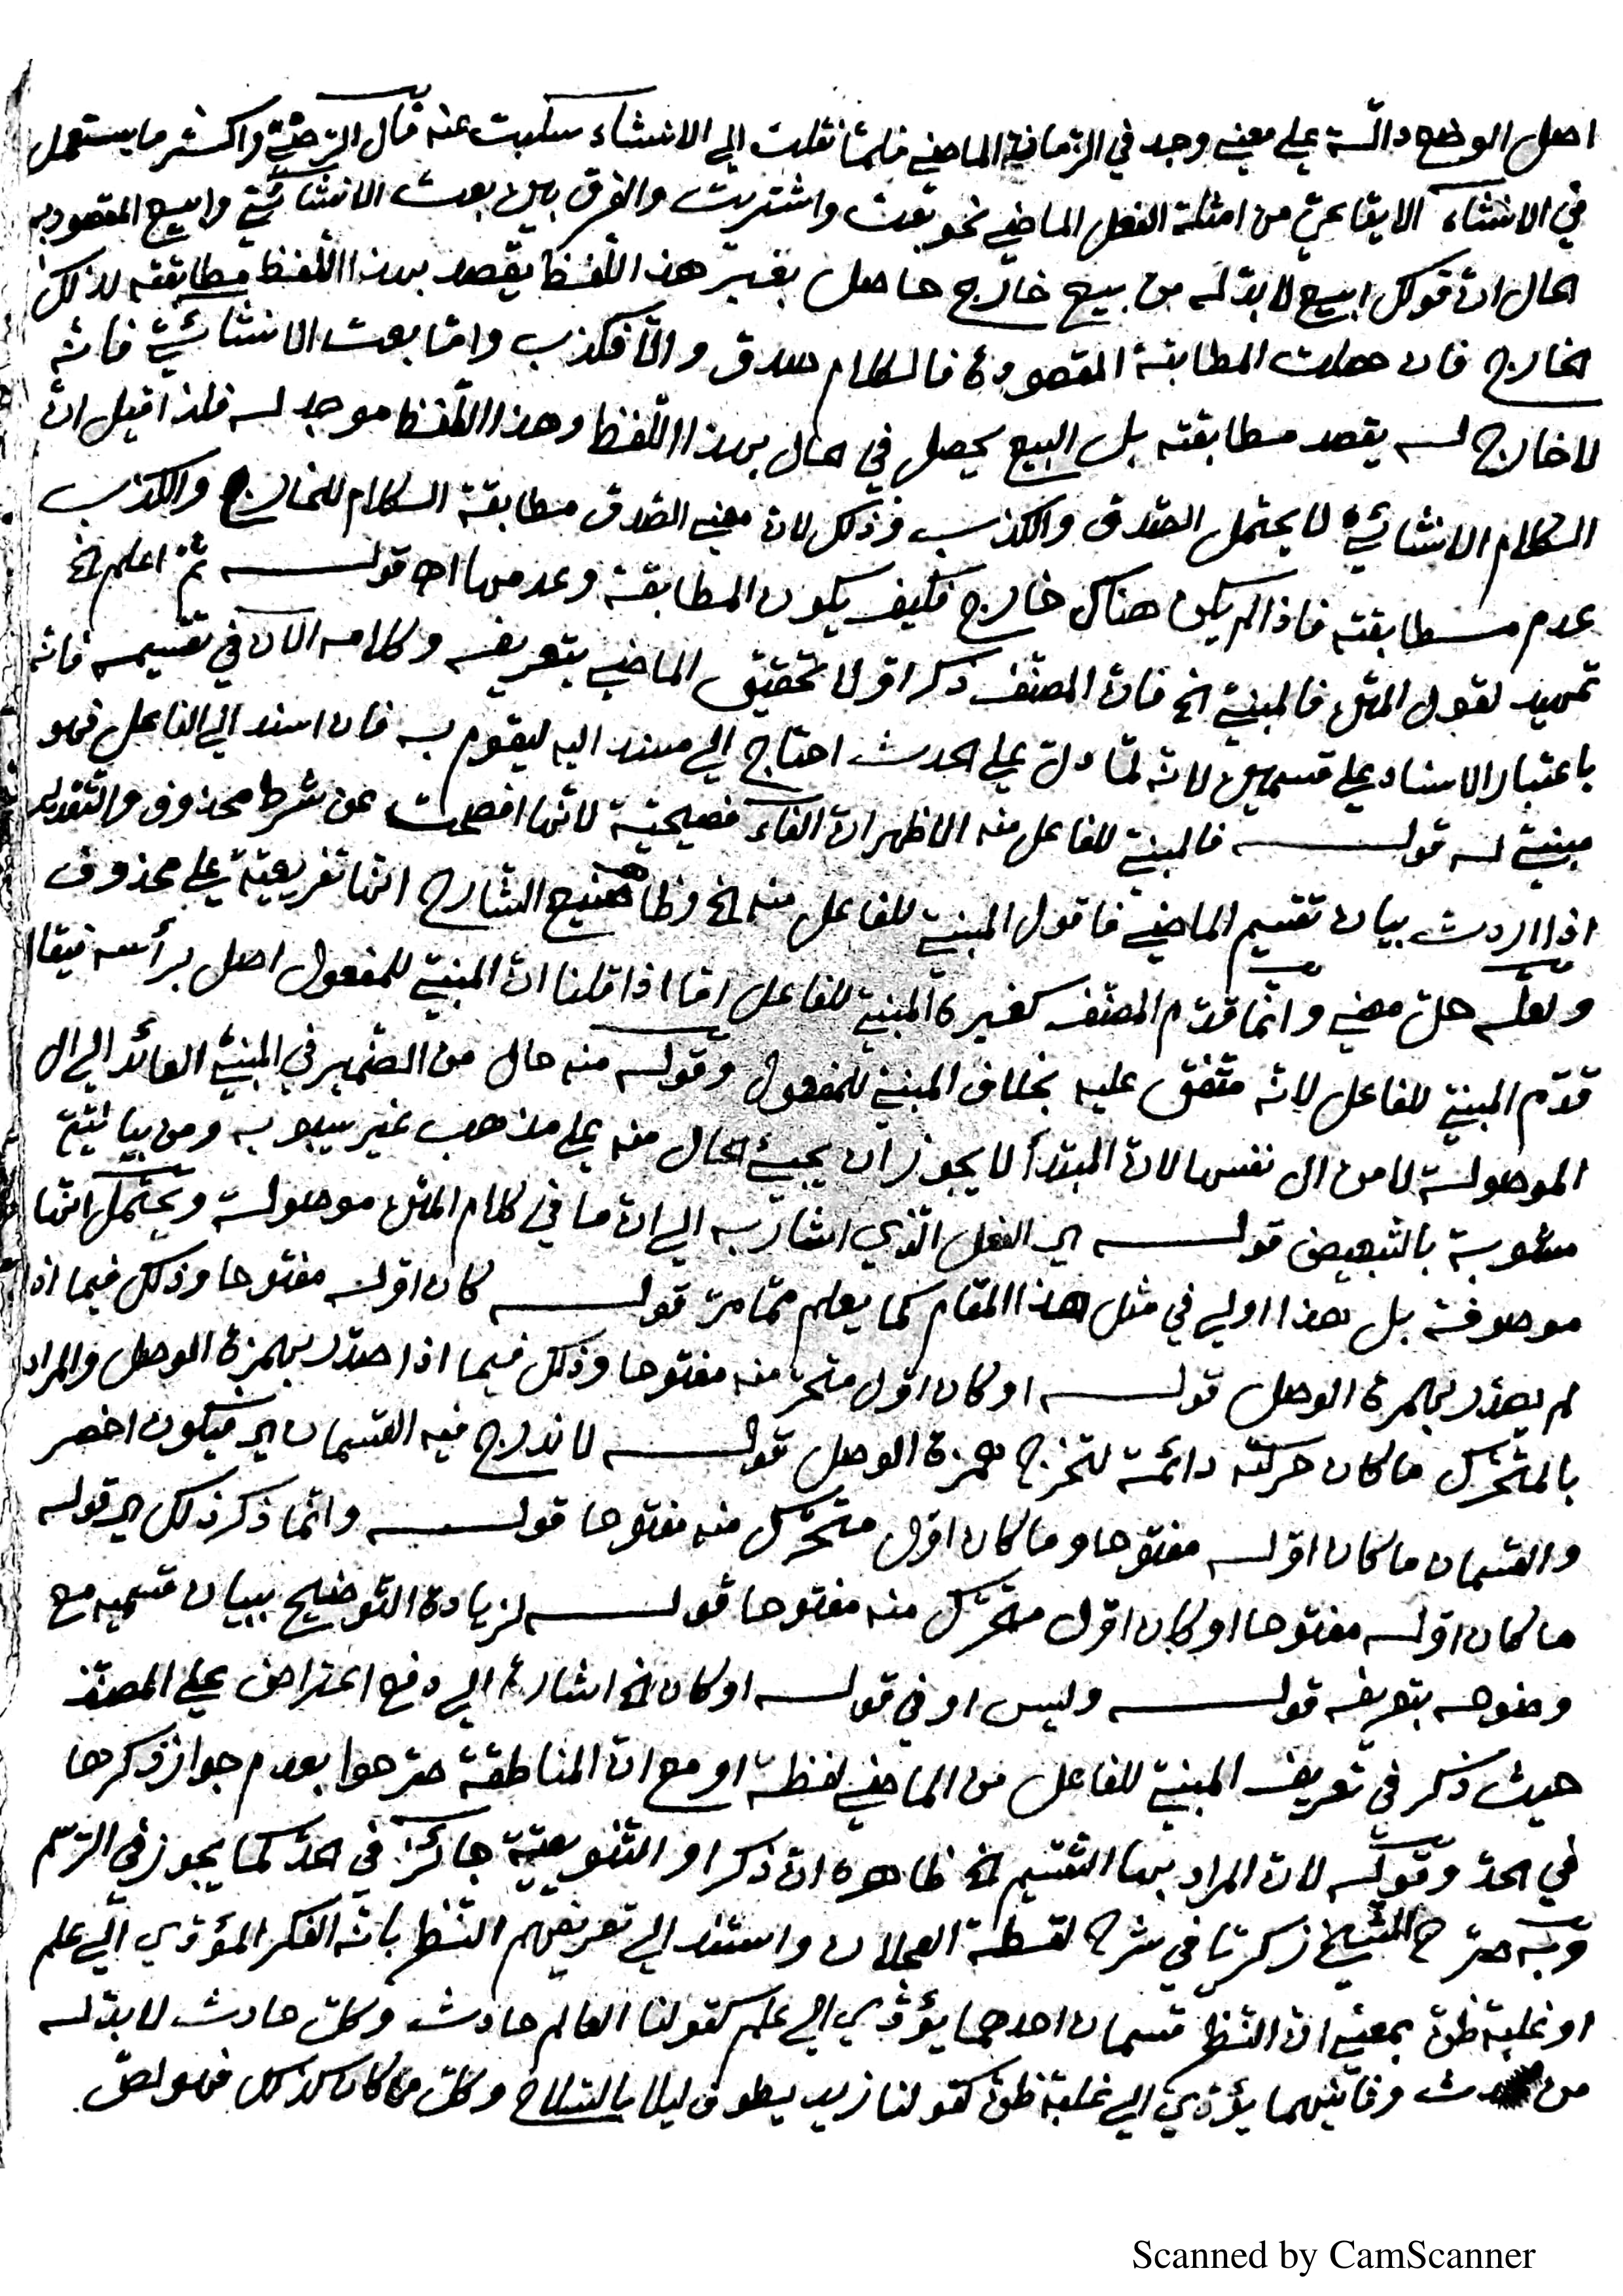 اصل الوضع دالّة على معنى وجد في الزمان الماضي فلمّا نقلت الى الانشاء سلبت عنه قال الرضىّ واكثر ما يستعمل
في الانشاء الايقاعيّ من امثلة الفعل الماضي نحو بعت واشتريت والفرق بين بعت الانشائيّ وابيع المقصود به
الحال انّ قولك ابيع لا بدّ له من بيع خارج حاصل بغير هذا اللّفظ يقصد بهذا اللّفظ مطابقته لذلك
الخارج فان حصلت المطابقة المقصودة فالكلام صدق والّا فكذب وامّا بعت الانشائيّ فانّه
لا خارج له يقصد مطابقته بل البيع يحصل في الحال بهذا اللّفظ وهذا اللّفظ موجد له فلذا قيل انّ
الكلام الانشائيّ لا يحتمل الصّدق والكذب وذلك لانّ معنى الصّدق مطابقة الكلام للخارج والكذب
عدم مطابقته فاذا لم يكن هناك خارج فكيف يكون المطابقة وعدمها اه قوله ثمّ اعلم الخ
تمهيد لقول المتن فالمبنيّ الخ فانّ المصنّف ذكر اوّلا تحقيق الماضي بتعريفه وكلامه الان في تقسيمه فانّه
باعتبار الاسناد على قسمين لانّه لمّا دلّ على الحدث احتاج الى مسند اليه ليقوم به فان اسند الى الفاعل فهو
مبنيّ له قوله فالمبنيّ للفاعل منه الاظهر انّ الفاء فصيحيّة لانّها افصحت عن شرط محذوف والتّقدير
اذا اردت بيان تقسيم الماضي فاقول المبنيّ للفاعل منه الخ وظاهر صنيع الشارح انّها تفريعيّة على محذوف
ولعلّه حلّ معنى وانّما قدّم المصنّف كغيره المبنيّ للفاعل امّا اذا قلنا انّ المبنيّ للمفعول اصل برأسه فيقال
قدّم المبنيّ للفاعل لانّه متّفق عليه بخلاف المبنيّ للمفعول وقوله منه حال من الضّمير في المبنيّ العائد الى ال
الموصولة لا من ال نفسها لانّ المبتدأ لا يجوز ان يجيئ الحال منه على مذهب غير سيبويه ومن بيانيّة
مشوبة بالتّبعيض قوله اي الفعل الّذي اشار به الى انّ ما في كلام المتن موصولة ويحتمل انّها
موصوفة بل هذا اولى في مثل هذا المقام كما يعلم ممّا مرّ قوله كان اوّله مفتوحا وذلك فيما اذا
لم يصدّر بهمزة الوصل قوله او كان اوّل متحرّك منه مفتوحا وذلك فيما اذا صدّر بهمزة الوصل والمراد
بالمتحرّك ما كان حركته دائمة لتخرج همزة الوصل قوله لاندرج فيه القسمان اي فيكون اخصر
والقسمان ما كان اوّله مفتوحا وما كان اوّل متحرّك منه مفتوحا قوله وانّما ذكر ذلك اي قوله
ما كان اوّله مفتوحا او كان اوّل متحرّك منه مفتوحا قوله لزيادة التّوضيح ببيان قسميه مع
وضوحه بتعريفه قوله وليس او في قوله او كان الخ اشارة الى دفع اعتراض على المصنّف
حيث ذكر في تعريف المبنيّ للفاعل من الماضي لفظة او مع انّ المناطقة صرّحوا بعدم جواز ذكرها
في الحدّ وقوله لانّ المراد بها التّقسيم الخ ظاهره انّ ذكر او التّنويعيّة جائز في الحدّ كما يجوز في الرّسم
وبه صرّح الشّيخ زكريّا في شرح لقطة العجلان واستند الى تعريفهم النّظر بانّه الفكر المؤدّي الى علم
او غلبة ظنّ بمعنى انّ النّظر قسمان احدهما يؤدّي الى علم كقولنا العالم حادث وكلّ حادث لا بدّ له
من محدث وثانيهما يؤدّي الى غلبة ظنّ كقولنا زيد يطوف ليلا بالسّلاح وكلّ من كان كذلك فهو لصّ
Scanned by CamScanner